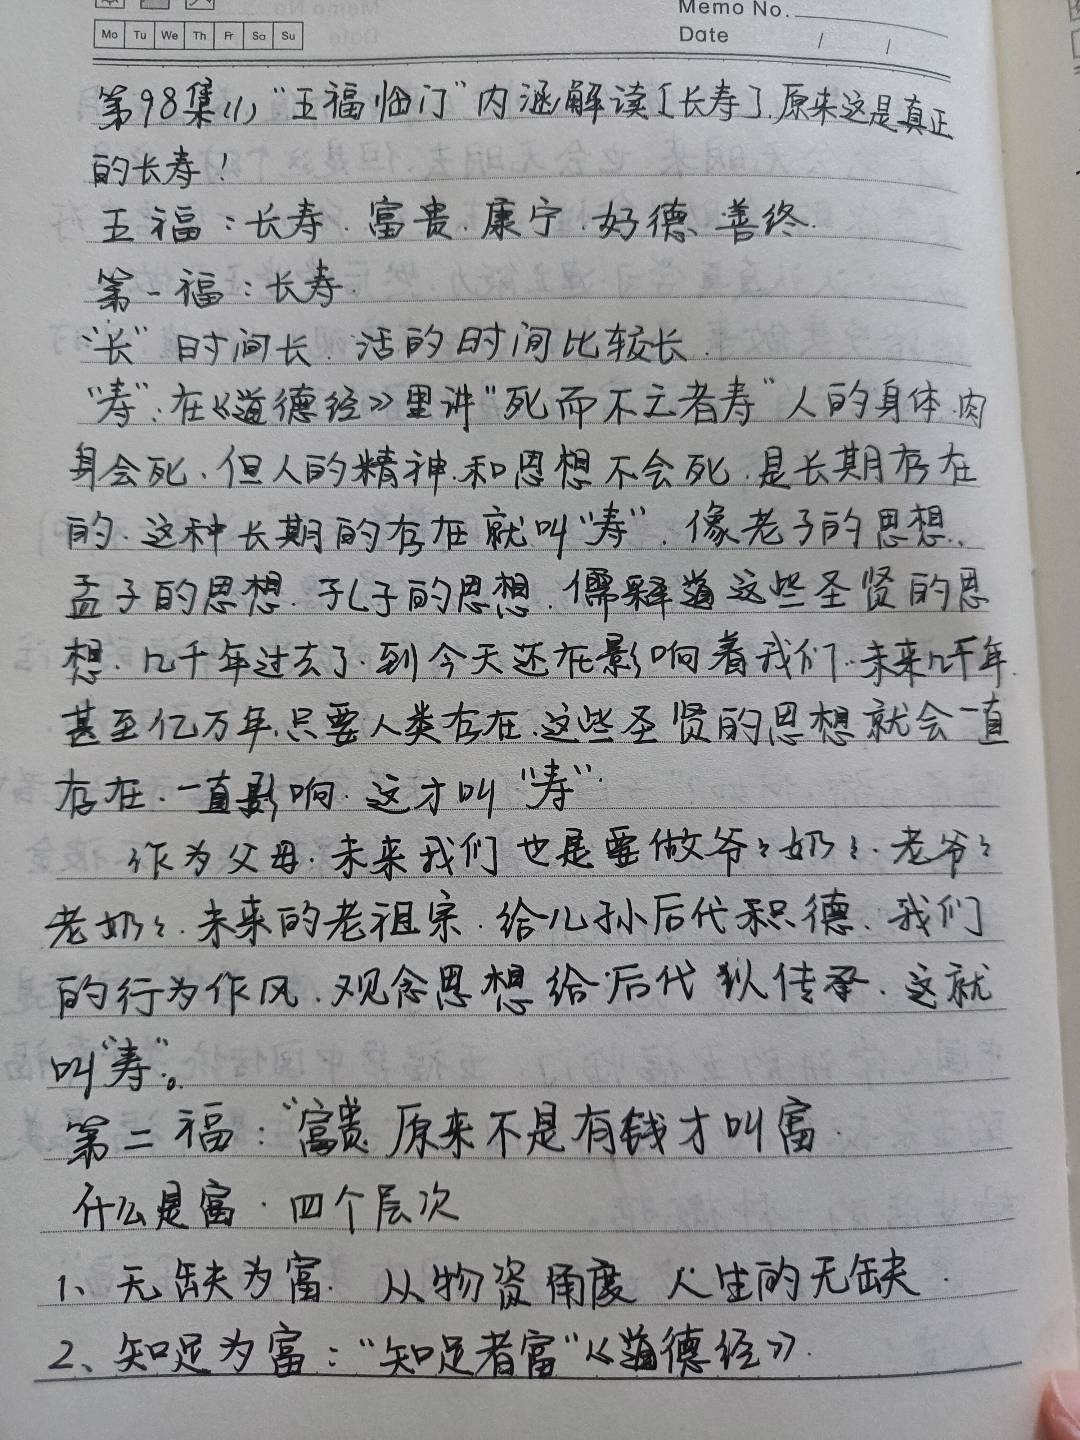 Memo No.
Mo Tu We Th Fr Sa Su
Date / /
第98集(1)，“五福临门”内涵解读[长寿]．原来这是真正
的长寿！
五福：长寿．富贵．康宁．好德．善终．
第一福：长寿．
“长”时间长．活的时间比较长．
“寿”．在《道德经》里讲“死而不亡者寿”人的身体．肉
身会死．但人的精神．和思想不会死．是长期存在
的．这种长期的存在就叫“寿”．像老子的思想．
孟子的思想．孔子的思想．儒释道这些圣贤的思
想．几千年过去了．到今天还在影响着我们．未来几千年．
甚至亿万年．只要人类存在．这些圣贤的思想就会一直
存在．一直影响．这才叫“寿”．
作为父母．未来我们也是要做爷々奶々．老爷々
老奶々．未来的老祖宗．给儿孙后代积德．我们
的行为作风．观念思想给后代 传承．这就
叫“寿”。
第二福：“富贵 原来不是有钱才叫富．
什么是富．四个层次
1、无缺为富．从物资角度 人生的无缺．
2、知足为富：“知足者富”《道德经》．